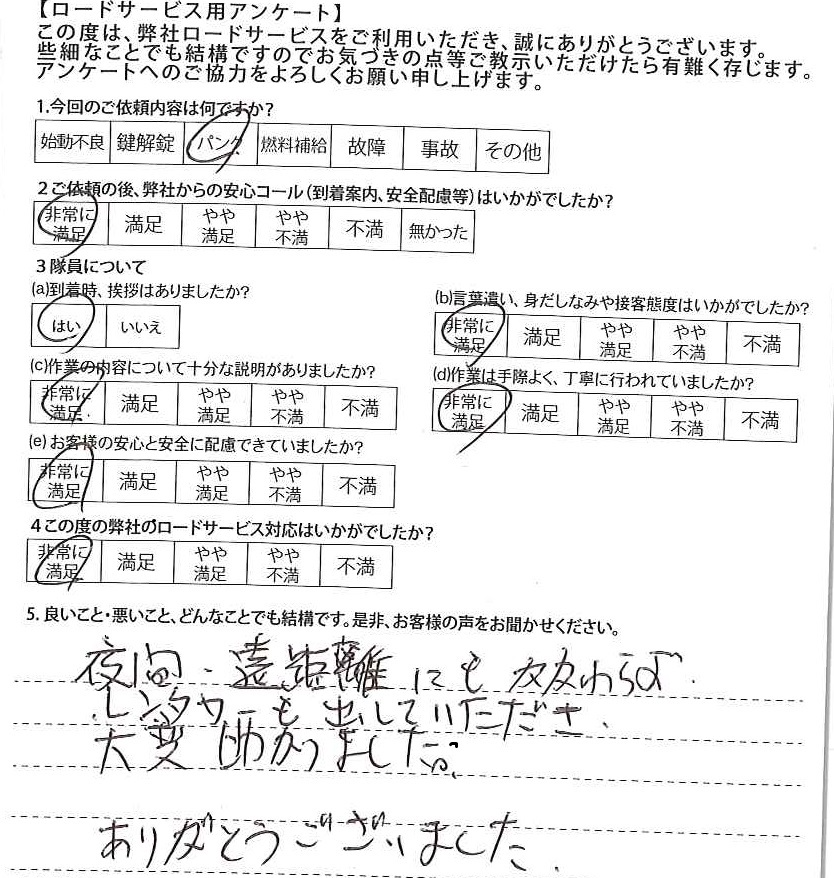 【ロードサービス用アンケート】
この度は、弊社ロードサービスをご利用いただき、誠にありがとうございます。
些細なことでも結構ですのでお気づきの点等ご教示いただけたら有難く存じます。
アンケートへのご協力をよろしくお願い申し上げます。
1.今回のご依頼内容は何ですか?
始動不良 鍵解錠 パンク 燃料補給 故障 事故 その他
2ご依頼の後、弊社からの安心コール(到着案内、安全配慮等)はいかがでしたか?
非常に満足 満足 やや満足 やや不満 不満 無かった
3隊員について
(a)到着時、挨拶はありましたか?
はい いいえ
(b)言葉遣い、身だしなみや接客態度はいかがでしたか?
非常に満足 満足 やや満足 やや不満 不満
(c)作業の内容について十分な説明がありましたか?
非常に満足 満足 やや満足 やや不満 不満
(d)作業は手際よく、丁寧に行われていましたか?
非常に満足 満足 やや満足 やや不満 不満
(e)お客様の安心と安全に配慮できていましたか?
非常に満足 満足 やや満足 やや不満 不満
4この度の弊社のロードサービス対応はいかがでしたか?
非常に満足 満足 やや満足 やや不満 不満
5.良いこと・悪いこと、どんなことでも結構です。是非、お客様の声をお聞かせください。
夜間・遠距離にも関わらず
レンタカーも出していただき、
大変助かりました。
ありがとうございました。